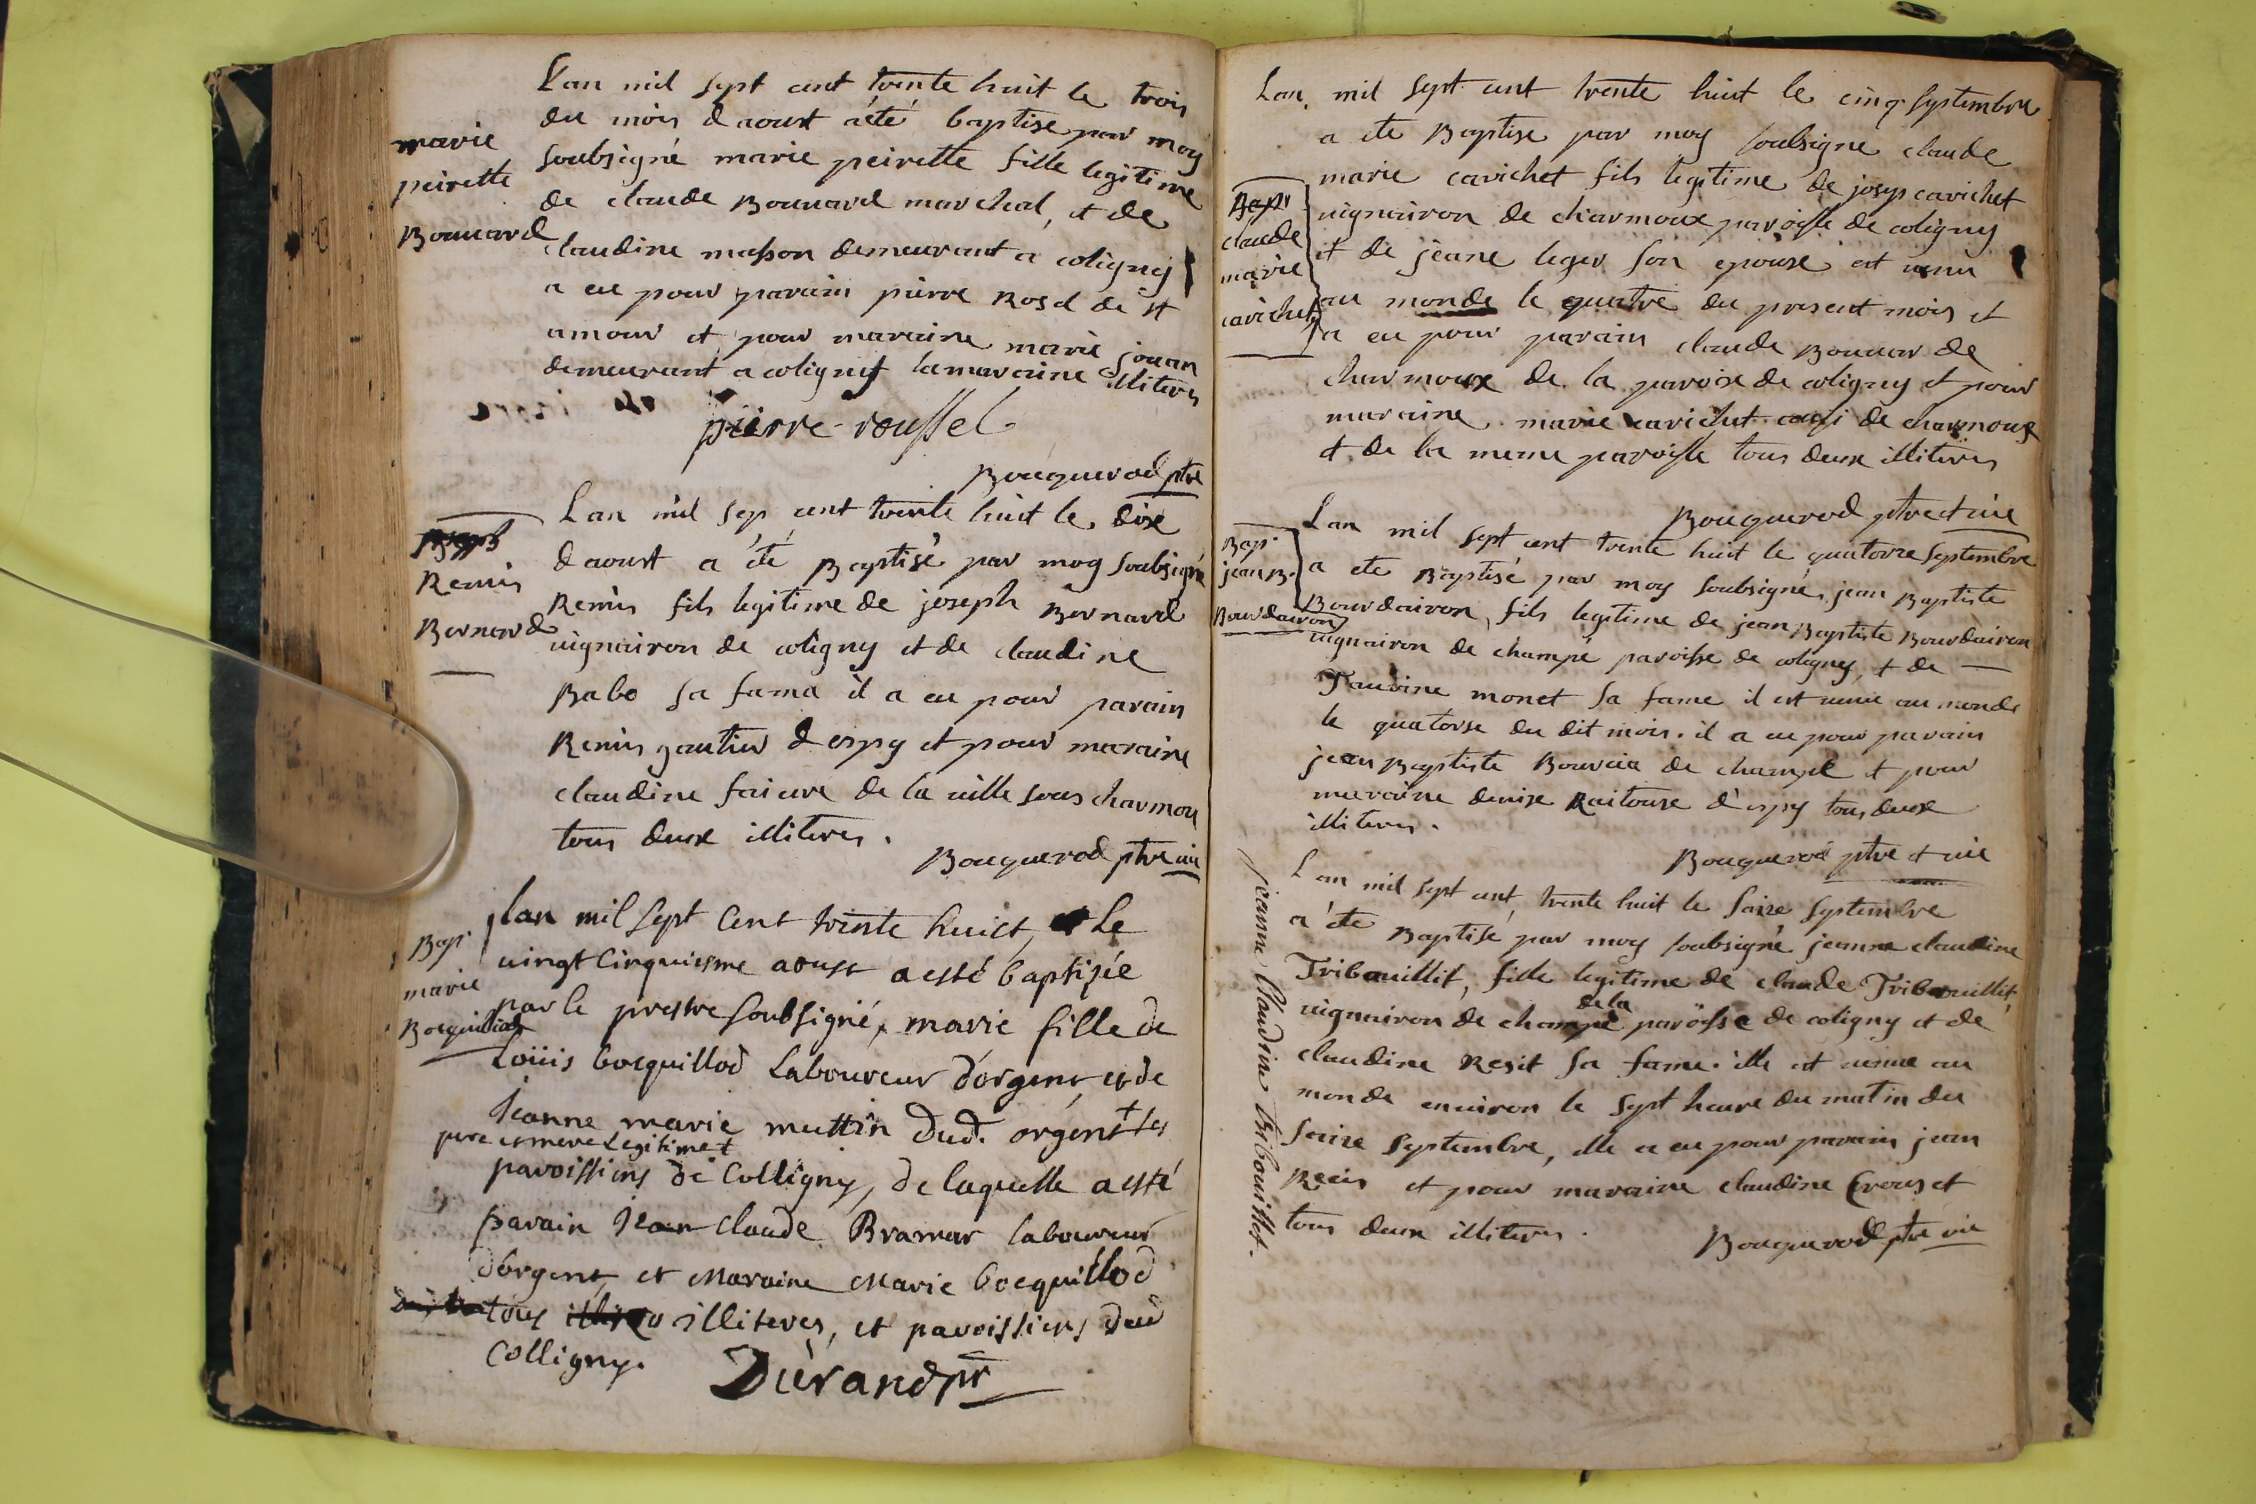 Lan mil sept cent trente huit le trois
du mois daoust a été baptise par moy
marie
peirette
Bouuard
soubsigné marie peirette fille legitime
de claude Bouuard marchal, et de
claudine masson demeurant a coligny
a eu pour parain pierre Rosel de st
amour et pour maraine marie jouan
demeurant a coligny la maraine illiteres
pierre roussel
Bouquerod ptre
Lan mil sep cent trente huit le dix
Remis
Bernard
daoust a été Baptisé par moy soubsigné
Remis fils legitime de joseph Bernard
uignairon de coligny et de claudine
Babo sa fama il a eu pour parain
Remis gautier despy et pour maraine
claudine faieure de la uille sous charmou
tous deux illiteres.
Bouquerod ptre uie
Bap.
marie
Bocquillod
lan mil sept Cent trente huict, Le
uingt Cinquiesme aoust a esté baptizée
par le prestre soubsigné, marie fille de
Loüis bocquillod Laboureur dorgent, et de
Jeanne marie muttin dud. orgent + les
pere et mere Legitime +
paroissiens de Colligny, de laquelle a esté
parain Jean claude Bramar laboureur
dorgent, et Maraine Marie bocquillod
tous illiteres, et paroissiens dud
Colligny.
Durand ptr
Lan mil sept cent trente huit le cinq septembre
a ete Baptise par moy soubsigne claude
Bapt
claude
marie
carichet
marie carichet fils legitime de josep carichet
uignairon de charmoux paroisse de coligny
et de jeane leger son epouse est uenu
au monde le quatre du present mois et
a eu pour parain claude Bouuar de
charmoux de la paroise de coligny et pour
maraine marie carichet de charmoux
et de la meme paroisse tous deux illiteres
Bouquerod ptre et uie
Bap.
jean B.
Bourdairon
Lan mil sept cent trente huit le quatorze septembre
a ete Baptisé par moy soubsigné jean Baptiste
Bourdairon, fils legitime de jean Baptiste Bourdairon
uignairon de champé paroisse de coligny, et de
Taurine monet sa fame il est uenu au monde
le quatorse du dit mois. il a eu pour parain
jean Baptiste Bourcia de champé et pour
maraine denise Raitouse d'espy tous deux
illiteres.
Bouquerod ptre et uie
jeanne Claudine tribouillet.
Lan mil sept cent, trente huit le saize septembre
a été Baptisé par moy soubsigné jeanne claudine
Tribouillit, fille legitime de claude Tribouillit,
uignairon de champé de la paröisse de coligny et de
claudine Resit sa fame. ille est uenue au
monde enuiron le sept heure du matin du
saize septembre, elle a eu pour parain jean
Recis et pour maraine claudine Crouset
tous deux illiteres.
Bouquerod ptre uie